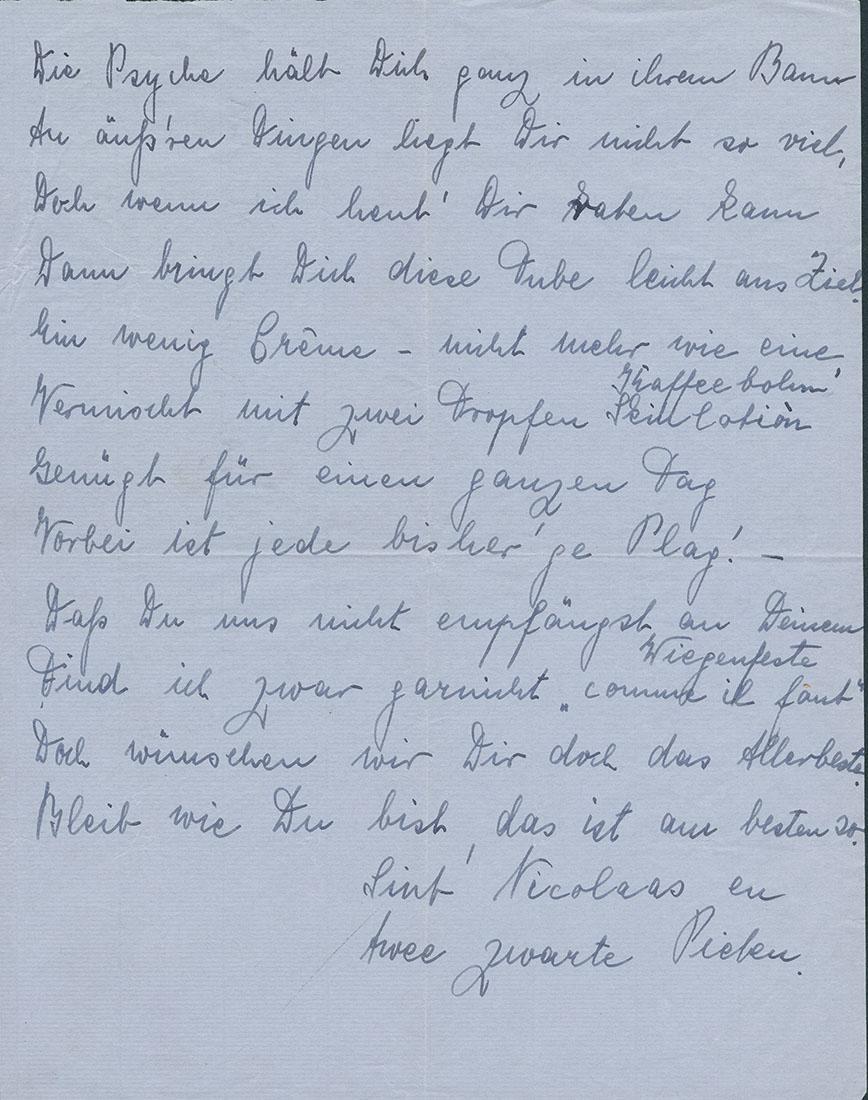 Die Psyche hält Dich ganz in ihrem Bann
An äuß'ren Dingen liegt Dir nicht so viel,
Doch wenn ich heut' Dir raten kann
Dann bringt Dich diese Tube leicht ans Ziel.
Ein wenig Crême – nicht mehr wie eine
Kaffeebohn'
Vermischt mit zwei Tropfen Skin lotion
Genügt für einen ganzen Tag
Vorbei ist jede bisher'ge Plag'! –
Daß Du uns nicht empfängst an Deinem
Wiegenfeste
Find ich zwar garnicht „comme il faut"
Doch wünschen wir Dir doch das Allerbeste.
Bleib wie Du bist, das ist am besten so.
Sint Nicolaas en
twee zwarte Pieken.